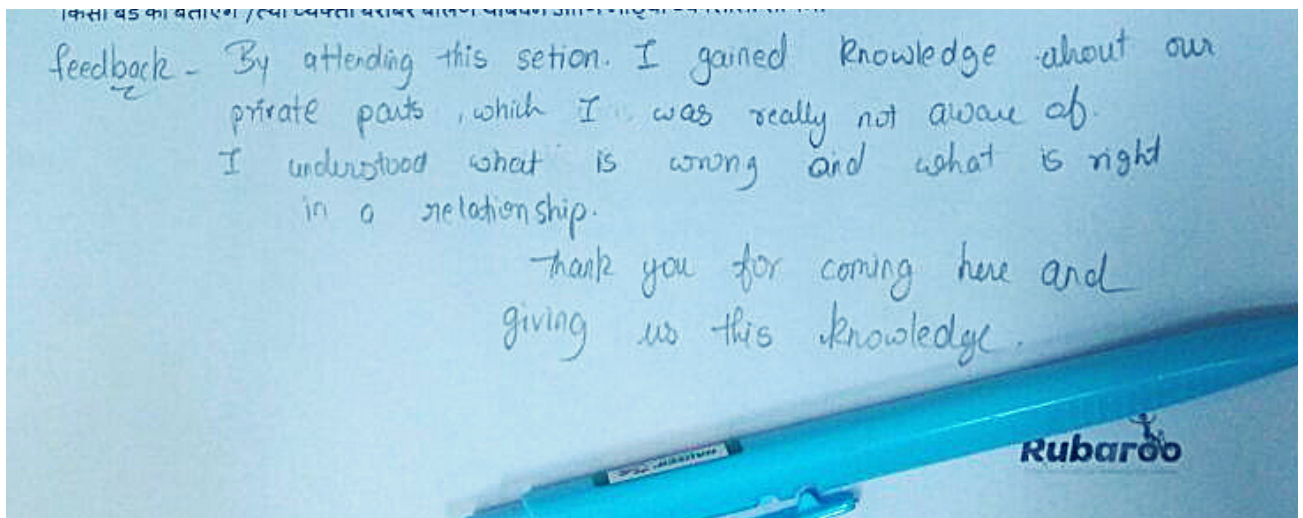 feedback - By attending this setion. I gained knowledge about our
private parts, which I was really not aware of.
I understood what is wrong and what is right
in a relationship.
Thank you for coming here and
giving us this knowledge.
Rubaroo